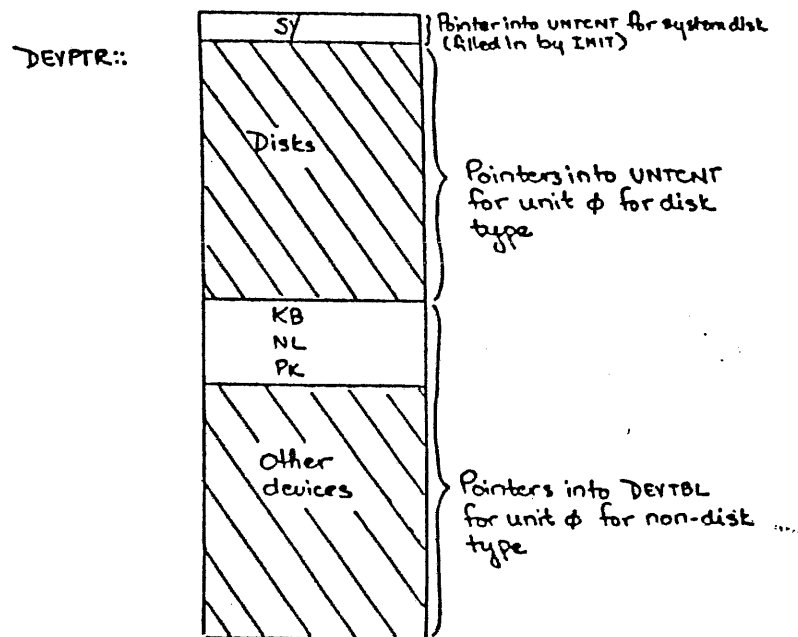 SY
Pointer into UNTCNT for system disk
(filled in by INIT)
DEVPTR::
Disks
Pointers into UNTCNT
for unit φ for disk
type
KB
NL
PK
Other
devices
Pointers into DEVTBL
for unit φ for non-disk
type